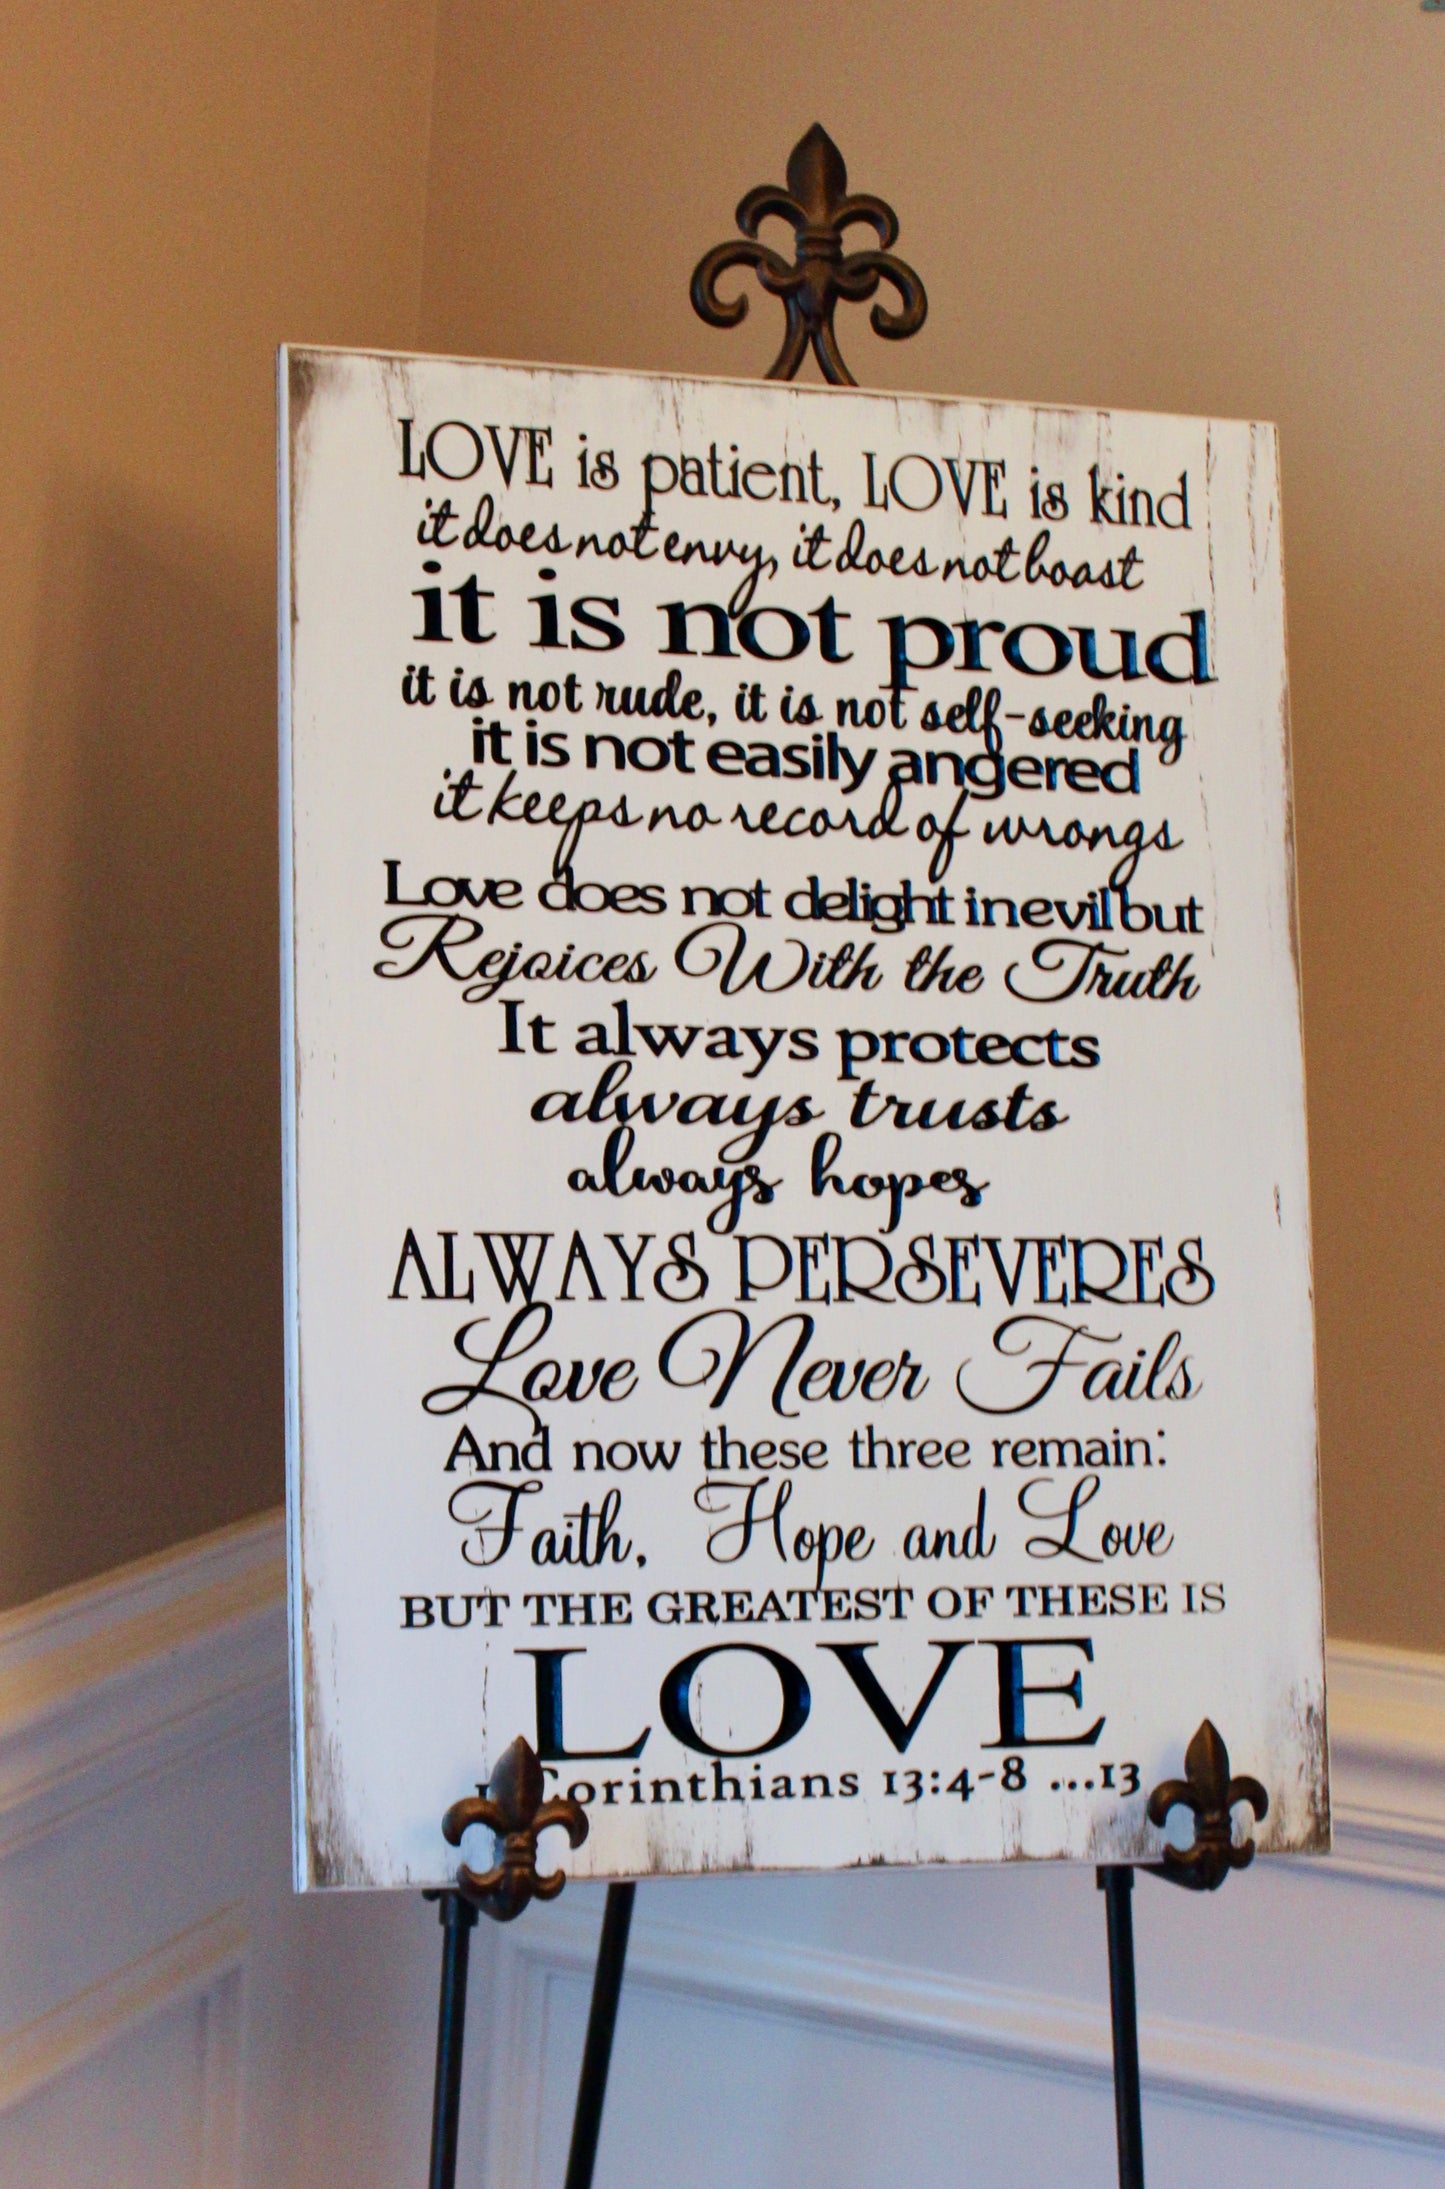 LOVE is patient, LOVE is kind
it does not envy, it does not boast
it is not proud
it is not rude, it is not self-seeking
it is not easily angered
it keeps no record of wrongs
Love does not delight in evil but
Rejoices With the Truth
It always protects
always trusts
always hopes
ALWAYS PERSEVERES
Love Never Fails
And now these three remain:
Faith, Hope and Love
BUT THE GREATEST OF THESE IS
LOVE
1 Corinthians 13:4-8 ...13